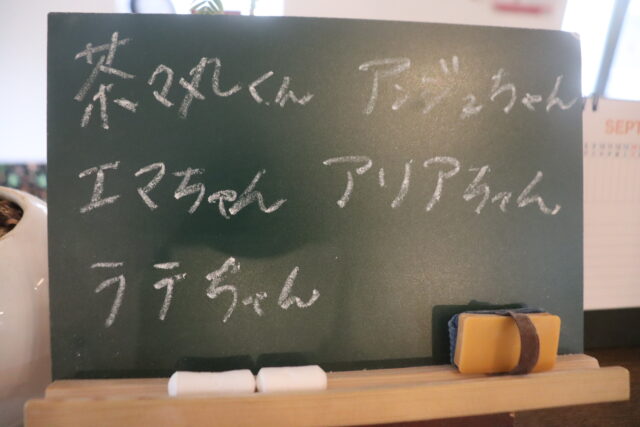 茶々丸くん アンジュちゃん
エマちゃん アリアちゃん
ラテちゃん
SEPT